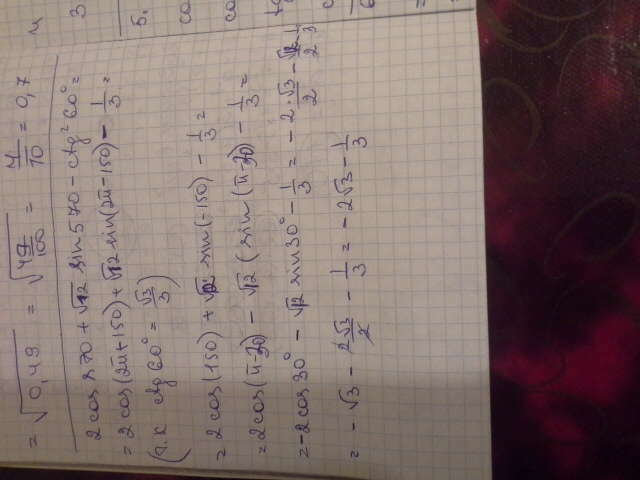 = √0,49 = √49/100 = 7/10 = 0,7
2cos 570 + √12 sin 570 - ctg² 60° =
= 2 cos(2π+150) + √12 sin(2π-150) - 1/3 =
(т.к ctg 60° = √3/3)
= 2cos(150) + √12 sin(-150) - 1/3 =
= 2cos(π-30) - √12 (sin(π-30) - 1/3 =
= -2cos 30° - √12 sin 30° - 1/3 = - 2·√3/2 - √12/2 - 1/3
= - √3 - 2√3/2 - 1/3 = - 2√3 - 1/3
ч
3
5.
со
со
tg
с
6
=